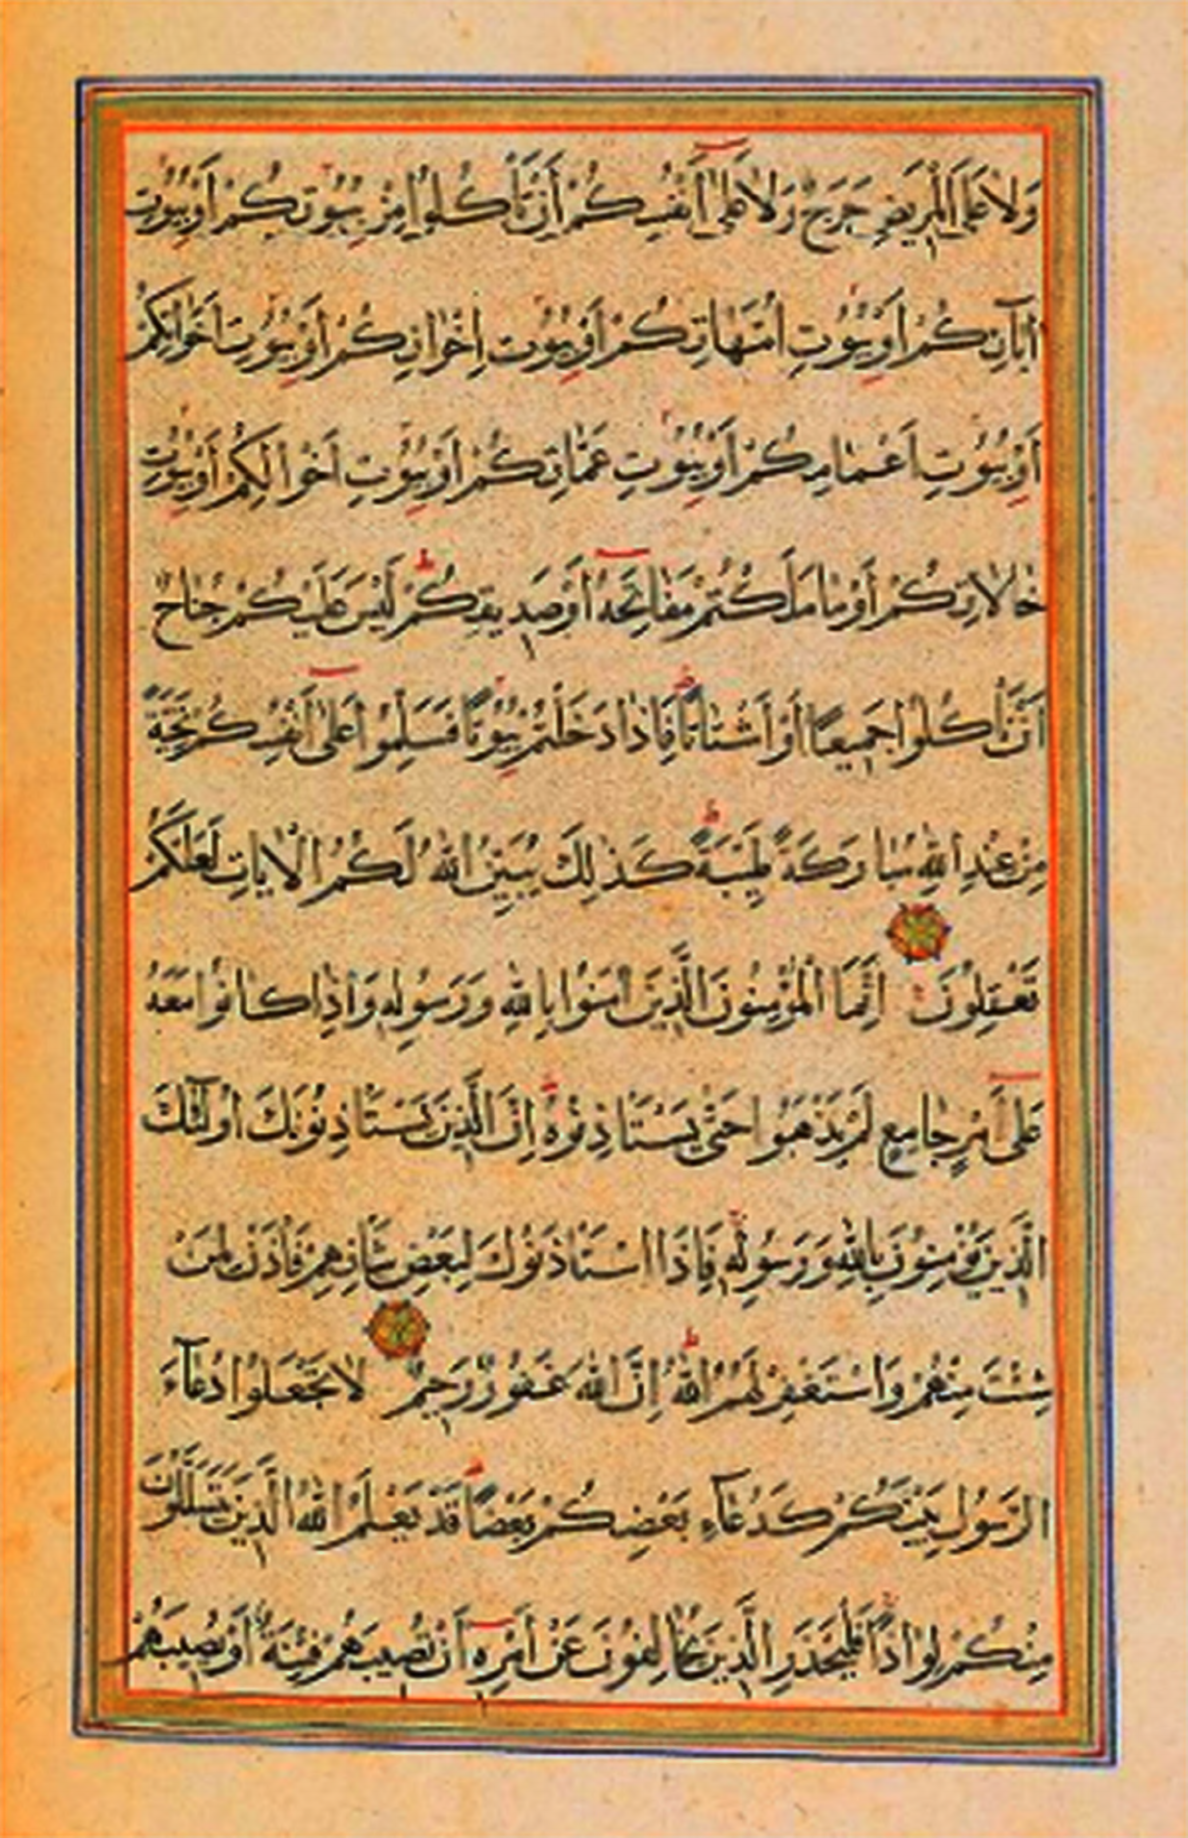 وَلَا عَلَى الْمَرِيضِ حَرَجٌ وَلَا عَلٰى اَنْفُسِكُمْ أَنْ تَأْكُلُوا مِنْ بُيُوتِكُمْ اَوْ بُيُوتِ
اٰبَآئِكُمْ اَوْ بُيُوتِ اُمَّهَاتِكُمْ اَوْ بُيُوتِ اِخْوَانِكُمْ اَوْ بُيُوتِ اَخَوَاتِكُمْ
اَوْ بُيُوتِ اَعْمَامِكُمْ اَوْ بُيُوتِ عَمَّاتِكُمْ اَوْ بُيُوتِ اَخْوَالِكُمْ اَوْ بُيُوتِ
خَالَاتِكُمْ اَوْ مَا مَلَكْتُمْ مَفَاتِحَهُ اَوْ صَدِيقِكُمْ ط لَيْسَ عَلَيْكُمْ جُنَاحٌ
اَنْ تَأْكُلُوا جَمِيعًا اَوْ اَشْتَاتًا فَاِذَا دَخَلْتُمْ بُيُوتًا فَسَلِّمُوا عَلٰى اَنْفُسِكُمْ تَحِيَّةً
مِنْ عِنْدِ اللهِ مُبَارَكَةً طَيِّبَةً ط كَذٰلِكَ يُبَيِّنُ اللهُ لَكُمُ الْاٰيَاتِ لَعَلَّكُمْ
تَعْقِلُونَ اِنَّمَا الْمُؤْمِنُونَ الَّذِينَ اٰمَنُوا بِاللهِ وَرَسُولِهِ وَاِذَا كَانُوا مَعَهُ
عَلٰى اَمْرٍ جَامِعٍ لَمْ يَذْهَبُوا حَتّٰى يَسْتَأْذِنُوهُ اِنَّ الَّذِينَ يَسْتَأْذِنُونَكَ اُولٰٓئِكَ
الَّذِينَ يُؤْمِنُونَ بِاللهِ وَرَسُولِهِ فَاِذَا اسْتَأْذَنُوكَ لِبَعْضِ شَأْنِهِمْ فَأْذَنْ لِمَنْ
شِئْتَ مِنْهُمْ وَاسْتَغْفِرْ لَهُمُ اللهَ ط اِنَّ اللهَ غَفُورٌ رَحِيمٌ لَا تَجْعَلُوا دُعَآءَ
الرَّسُولِ بَيْنَكُمْ كَدُعَآءِ بَعْضِكُمْ بَعْضًا قَدْ يَعْلَمُ اللهُ الَّذِينَ يَتَسَلَّلُونَ
مِنْكُمْ لِوَاذًا فَلْيَحْذَرِ الَّذِينَ يُخَالِفُونَ عَنْ اَمْرِهِ اَنْ تُصِيبَهُمْ فِتْنَةٌ اَوْ يُصِيبَهُمْ